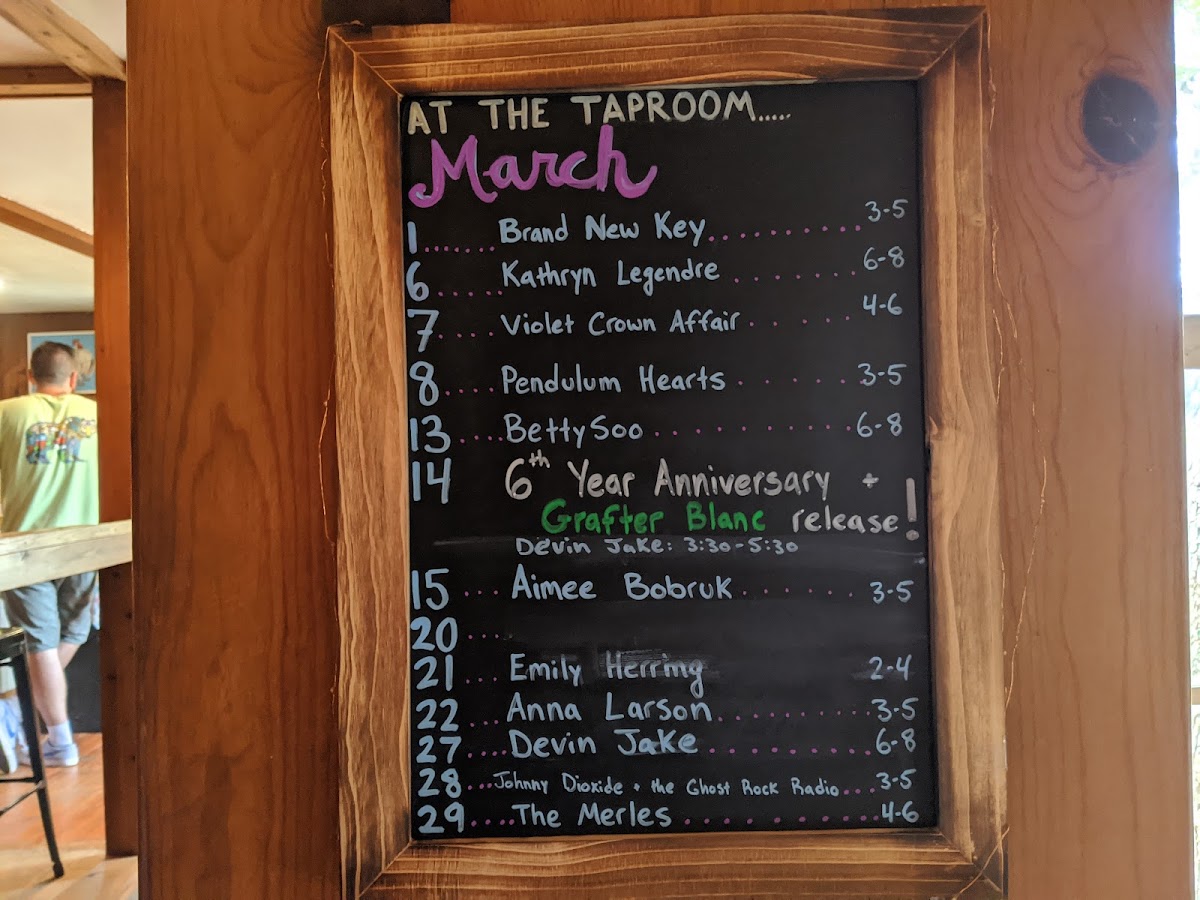 AT THE TAPROOM.....
March
1....... Brand New Key.......... 3-5
6..... Kathryn Legendre ........ 6-8
7..... Violet Crown Affair ...... 4-6
8.... Pendulum Hearts ........ 3-5
13.... BettySoo ........... 6-8
14 6th Year Anniversary +
Grafter Blanc release!
Devin Jake: 3:30-5:30
15.... Aimee Bobruk ........ 3-5
20....
21.... Emily Herring 2-4
22.... Anna Larson.......... 3-5
27..... Devin Jake .......... 6-8
28....Johnny Dioxide + the Ghost Rock Radio... 3-5
29.....The Merles .......... 4-6